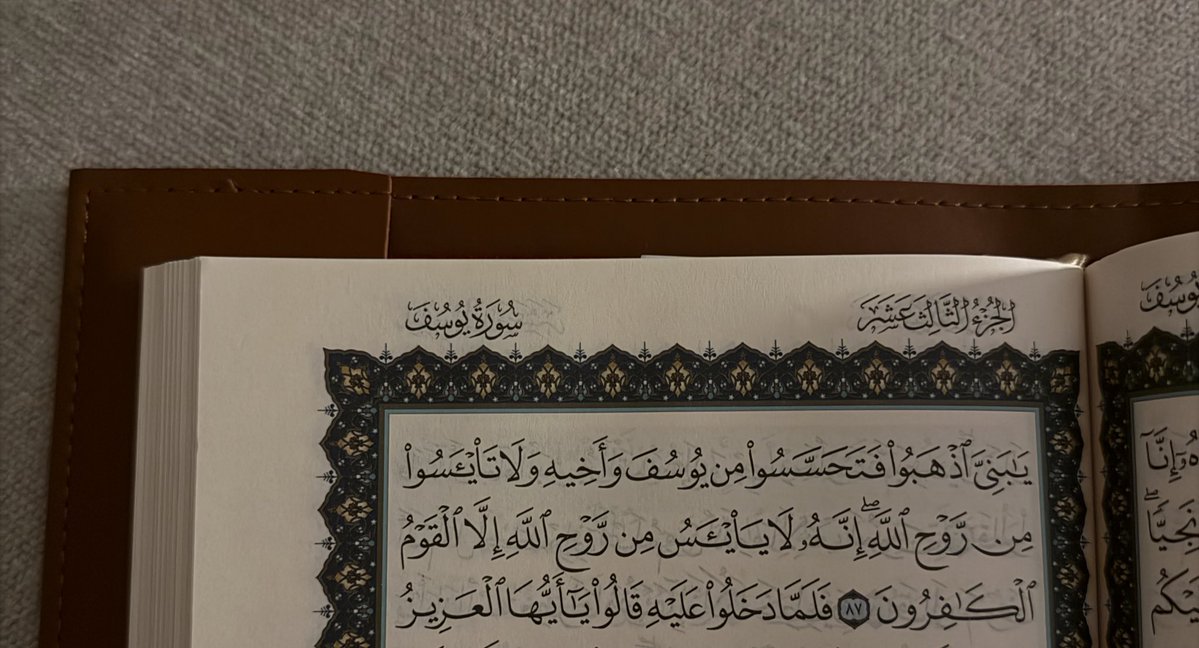 الجزء الثالث عشر
سورة يوسف
يَٰبَنِيَّ ٱذْهَبُوا۟ فَتَحَسَّسُوا۟ مِن يُوسُفَ وَأَخِيهِ وَلَا تَا۟يْـَٔسُوا۟
مِن رَّوْحِ ٱللَّهِ ۖ إِنَّهُۥ لَا يَا۟يْـَٔسُ مِن رَّوْحِ ٱللَّهِ إِلَّا ٱلْقَوْمُ
ٱلْكَٰفِرُونَ ٨٧ فَلَمَّا دَخَلُوا۟ عَلَيْهِ قَالُوا۟ يَٰٓأَيُّهَا ٱلْعَزِيزُ